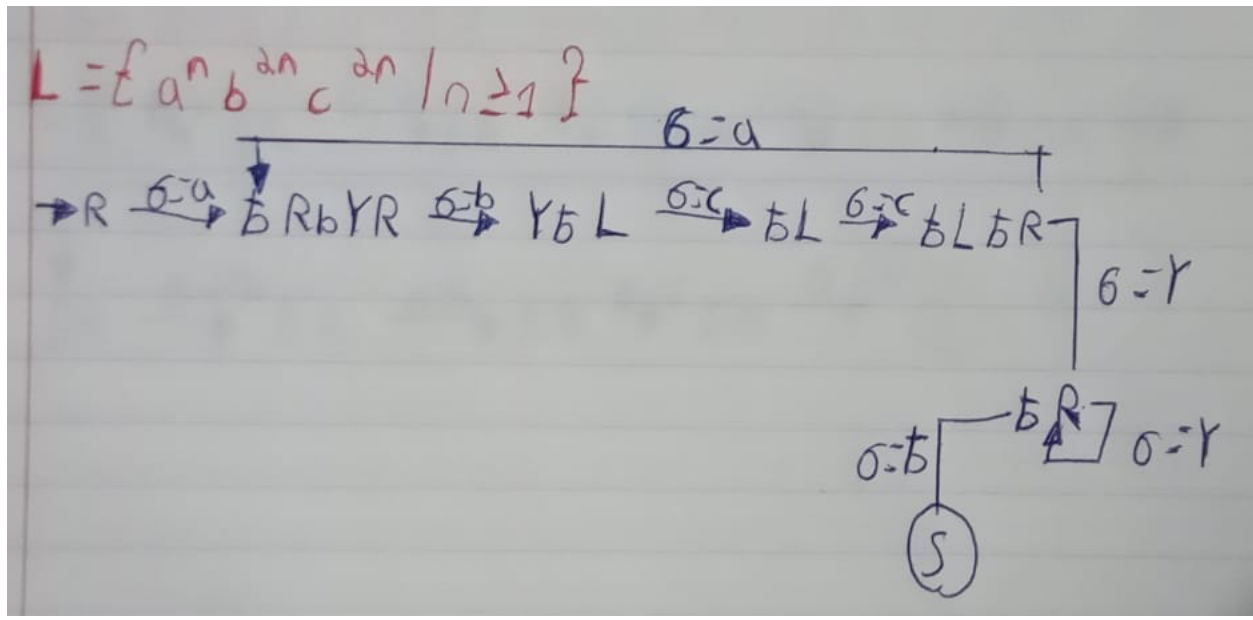 L = { aⁿ b²ⁿ c²ⁿ / n ≥ 1 }
σ = a
→ R σ=a ƀ R b Y R σ=b Y ƀ L σ=c ƀ L σ=c ƀ L ƀ R
σ = Y
ƀ R σ = Y
σ = ƀ
S